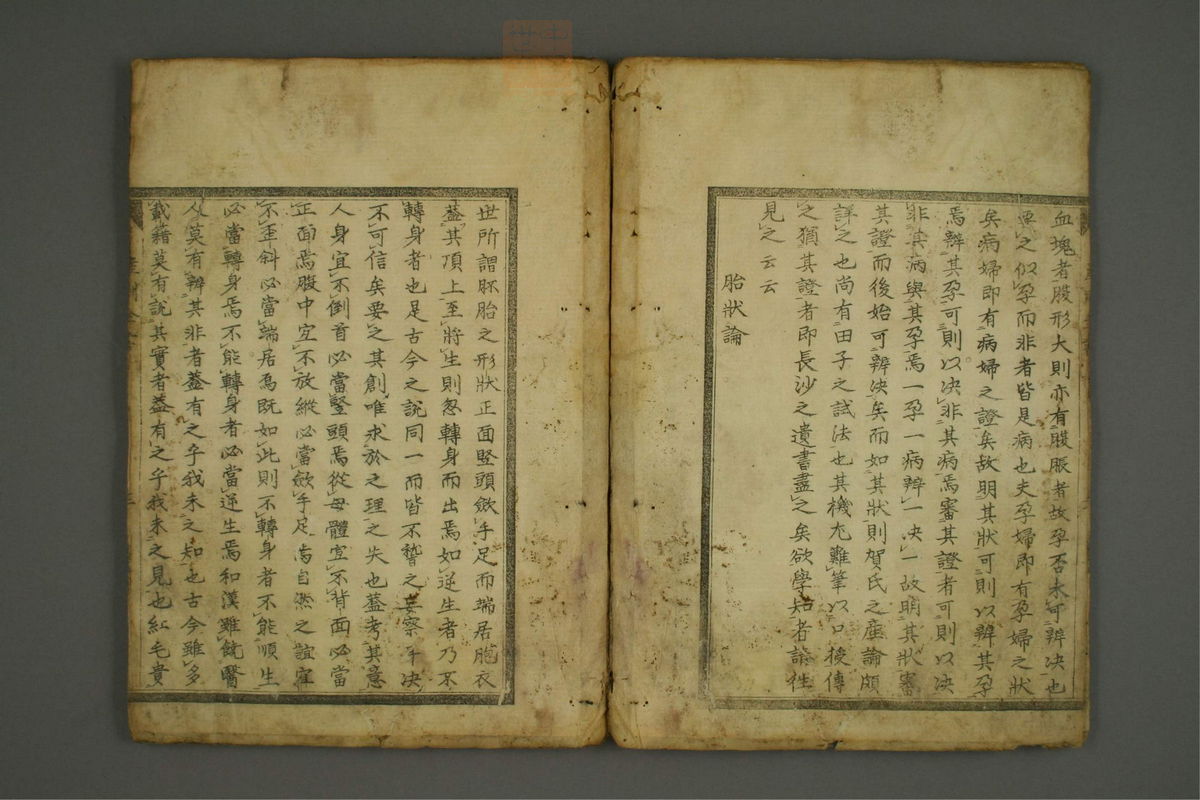 血塊者腹形大則亦有腹脹者故孕否未可辨决也
要之似孕而非者皆是病也夫孕婦即有孕婦之狀
矣病婦即有病婦之證矣故明其狀可則以辨其孕
焉辨其孕可則以决非其病焉審其證者可則以决
非其病與其孕焉一孕一病辨一决一故明其狀審
其證而後始可辨决矣而如其狀則賀氏之產論頗
詳之也尚有田子之試法也其機尤難筆以口授傳
之猶其證者即長沙之遺書盡之矣欲學知者請往
見之云云
胎狀論
世所謂胚胎之形狀正面竪頭斂手足而端居胞衣
蓋其頂上至將生則忽轉身而出焉如逆生者乃不
轉身者也是古今之說同一而皆不瞀之妄察乎决
不可信矣要之其創唯求於之理之失也蓋考其意
人身宜不倒首必當竪頭焉從母體宜不背面必當
正面焉腹中宜不放縱必當斂手足焉自然之誼室
不歪斜必當端居焉既如此則不轉身者不能順生
必當轉身焉不能轉身者必當逆生焉和漢雖饒醫
人莫有辨其非者蓋有之乎我未之知也古今雖多
載籍莫有說其實者蓋有之乎我未之見也紅毛貴